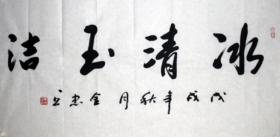 冰清玉洁
戊戌年秋月金忠云